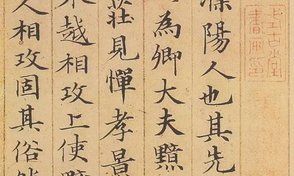 濮陽人也其先
為卿大夫黯
莊見憚孝景
越相攻上使黯
人相攻固其俗然